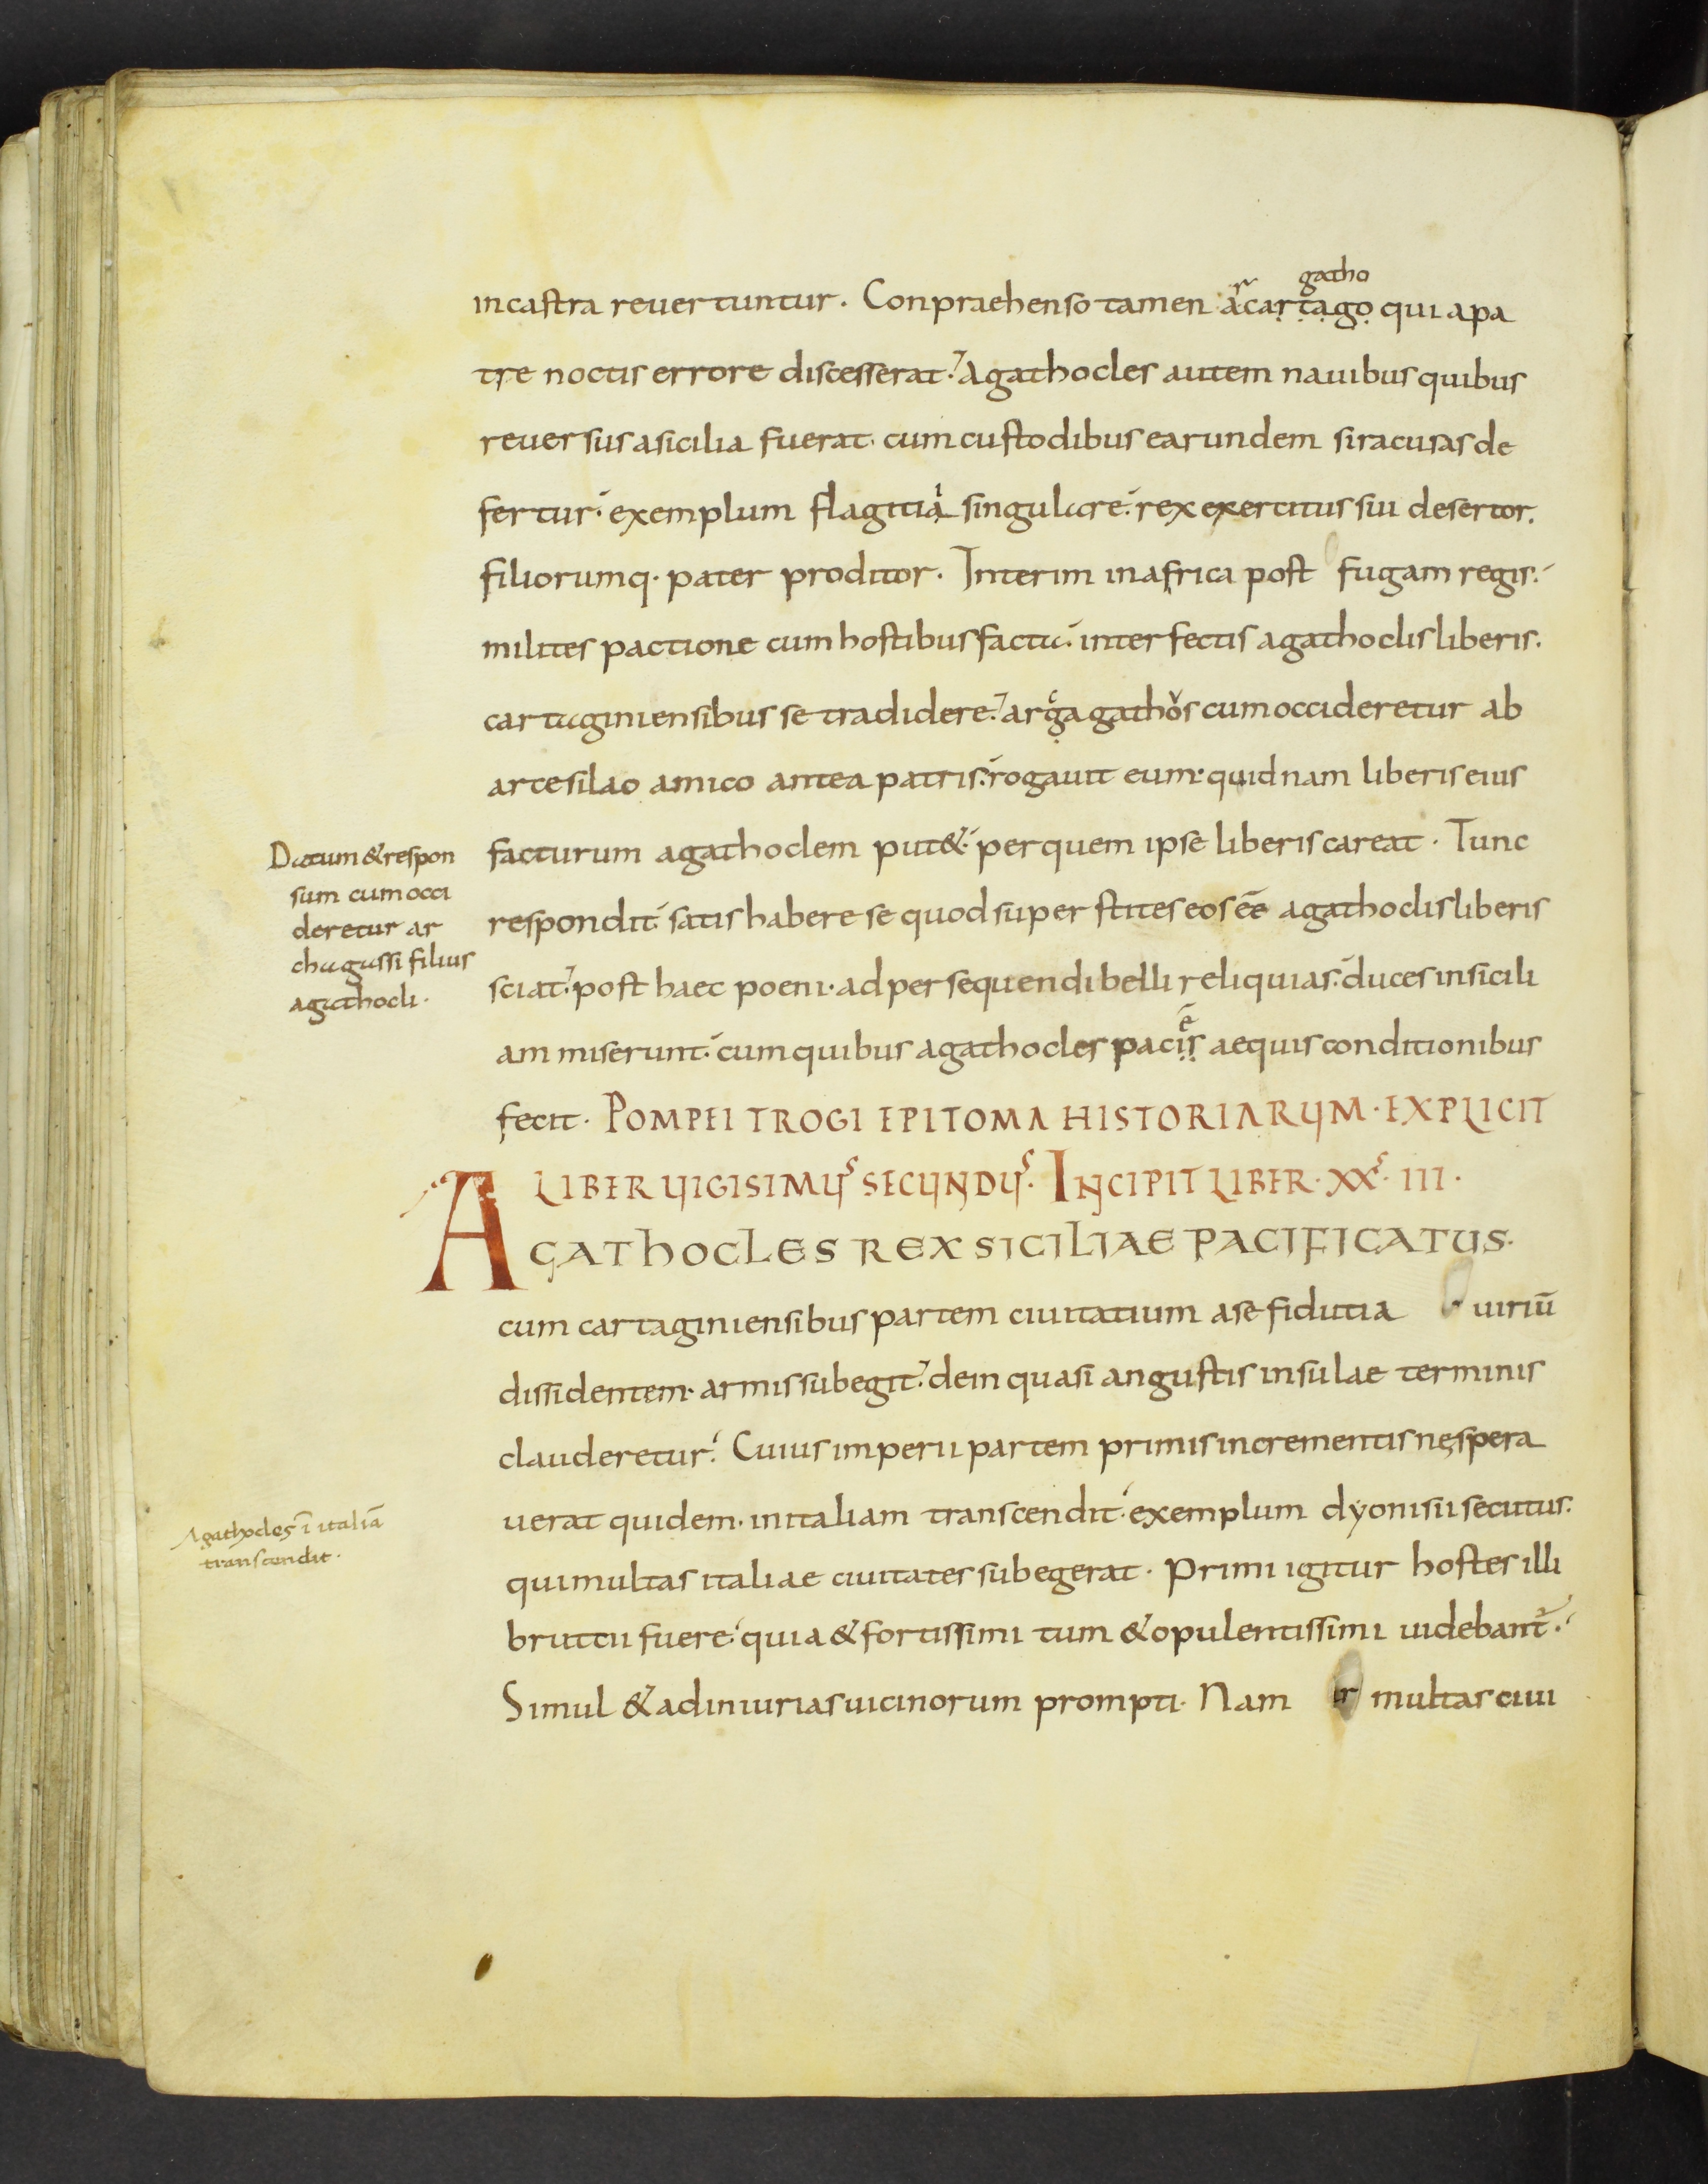 gatho
in castra reuertuntur. Conpraehenso tamen arcartago qui a pa
tre noctis errore discesserat. Agathocles autem nauibus quibus
reuersus a sicilia fuerat. cum custodibus earundem siracusas de
fertur. exemplum flagitia singulare. rex exercitus sui desertor.
filiorumq. pater proditor. Interim in africa post fugam regis.
milites pactione cum hostibus facta. interfectis agathoclis liberis.
cartaginiensibus se tradidere. argagathos cum occideretur ab
artesilao amico antea patris. rogauit eum. quidnam liberis eius
facturum agathoclem put&. per quem ipse liberis careat. Tunc
respondit. satis habere se quod superstites eos ēē agathoclis liberis
sciat. post haec poeni. ad persequendi belli reliquias. duces in sicili
am miserunt. cum quibus agathocles pacis aequis conditionibus
fecit. POMPEI TROGI EPITOMA HISTORIARUM. EXPLICIT
LIBER UIGISIMUS SECUNDUS. INCIPIT LIBER. XXS. III.
AGATHOCLES REX SICILIAE PACIFICATUS.
cum cartaginiensibus partem ciuitatium a se fidutia uiriū
dissidentem. armis subegit. dein quasi angustis insulae terminis
clauderetur. Cuius imperii partem primis incrementis ne spera
uerat quidem. in italiam transcendit. exemplum dyonisii secutus.
qui multas italiae ciuitates subegerat. Primi igitur hostes illi
bruttii fuere. quia & fortissimi tum & opulentissimi uidebant̄.
Simul & ad iniurias uicinorum prompti. Nam multas ciui
Dictum & respon
sum cum occi
deretur ar
chagassi filius
agathocli.
Agathocles ī italiā
transcendit.